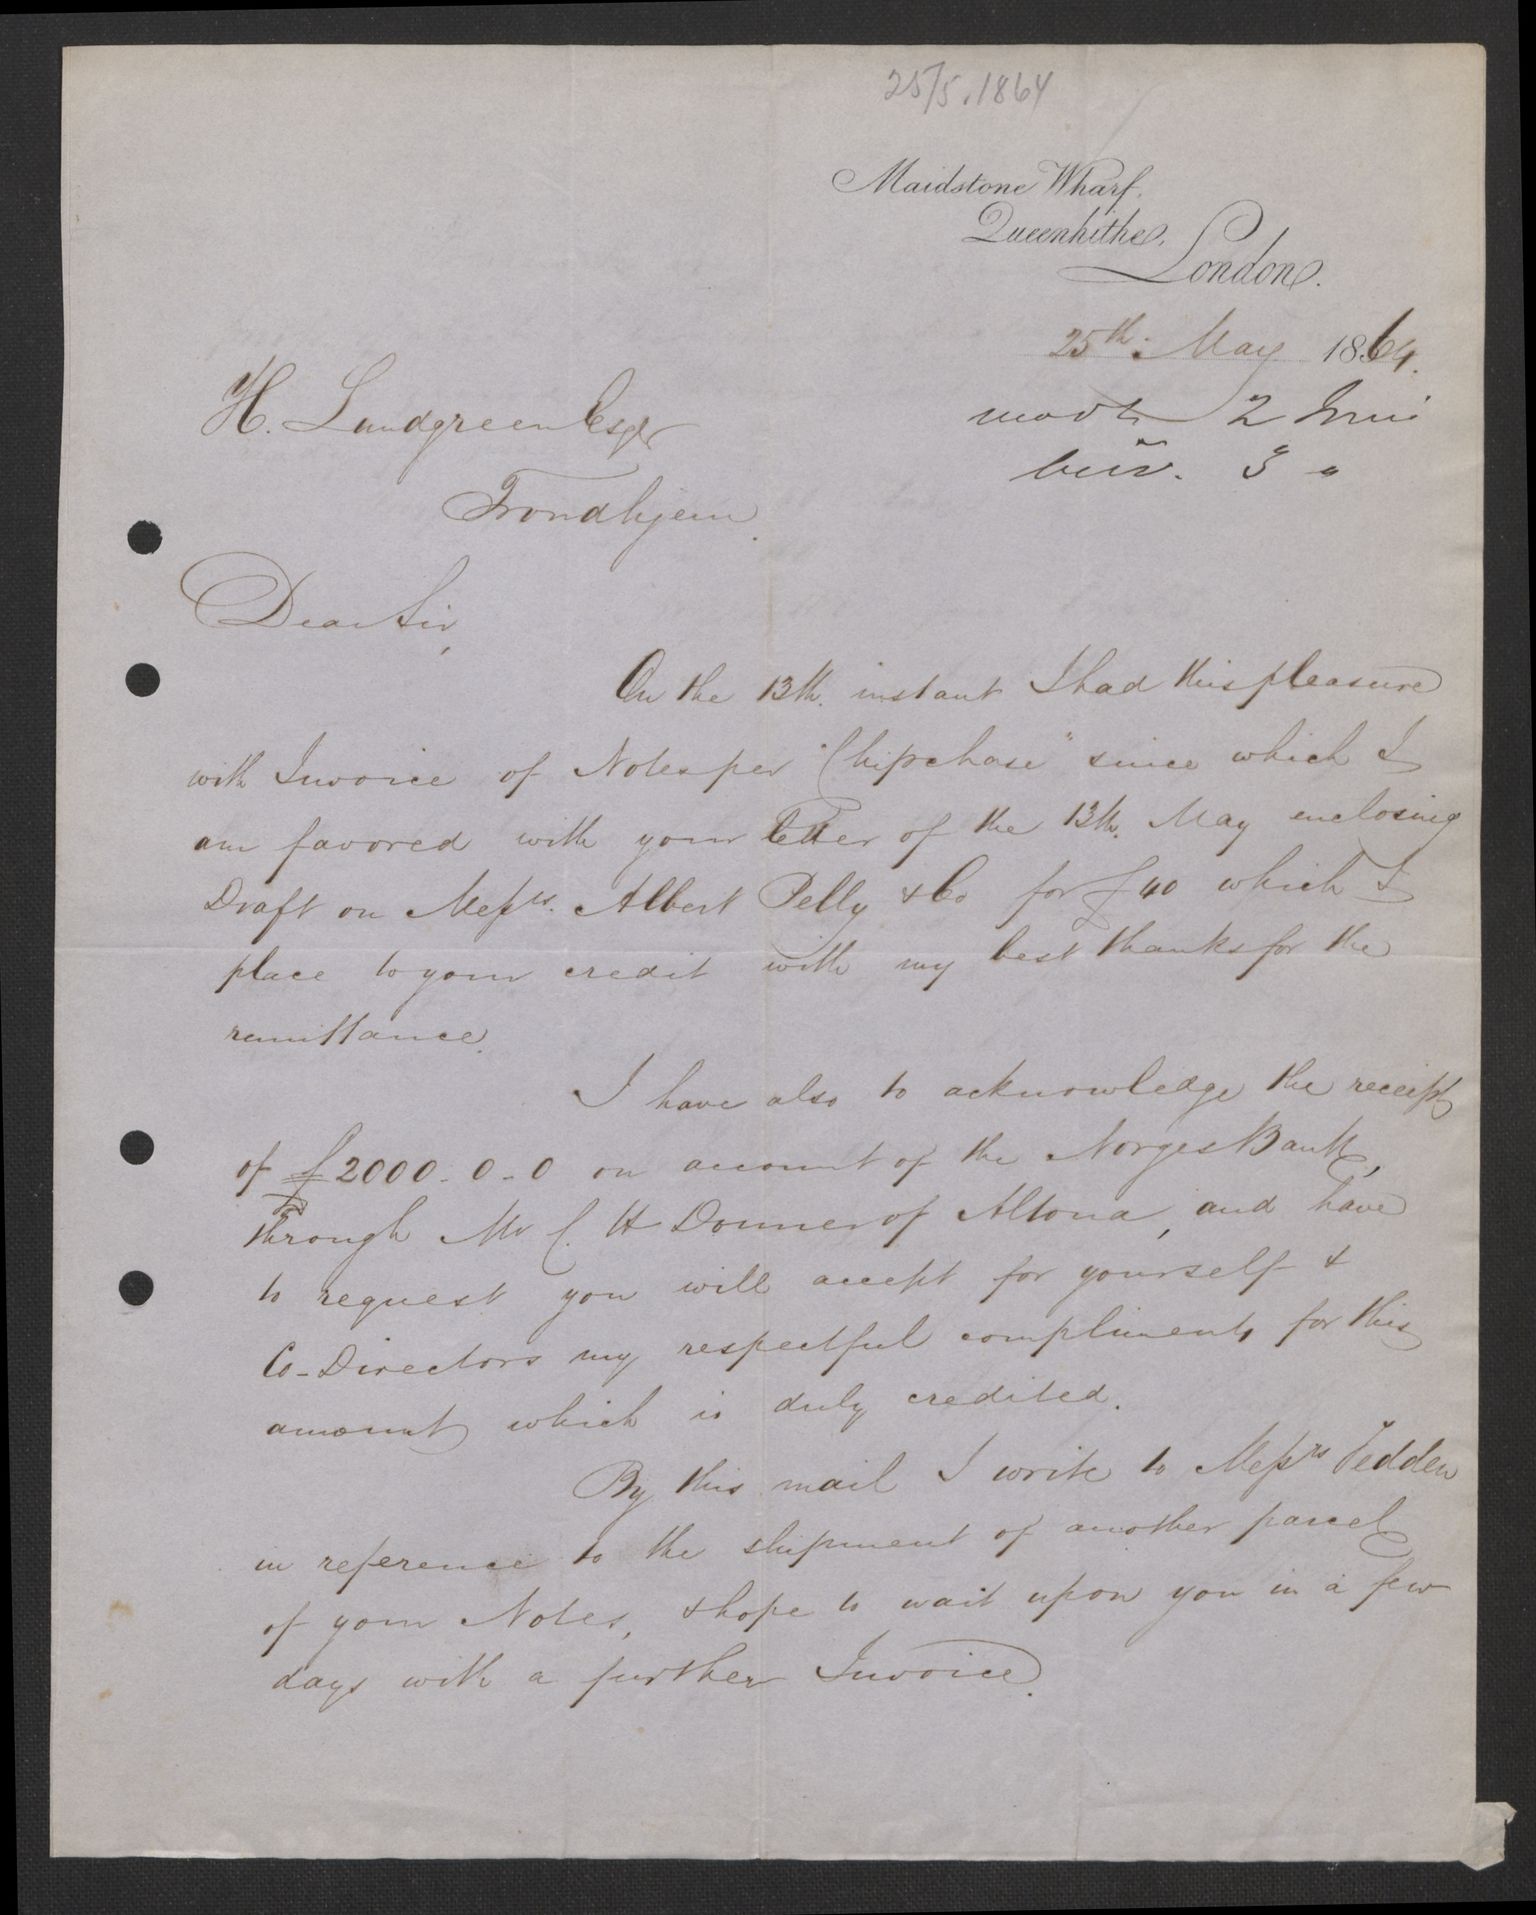 25/5. 1864
Maidstone Wharf,
Queenhithe,
London.
25th May 1864.
H. Lundgreen Esqr
2 Juni
3 "
Trondhjem.
Dear Sir,
On the 13th. instant I had this pleasure
with Invoice of Notes per "Chipchase" since which I
am favored with your letter of the 13th. May enclosing
Draft on Messrs. Albert Pelly & Co for £40 which I
place to your credit with my best thanks for the
remittance.
I have also to acknowledge the receipt
of £2000-0-0 on account of the Norges Bank,
through Mr C. H Donner of Altona, and have
to request you will accept for yourself &
Co-Directors my respectful compliments for this
amount which is duly credited.
By this mail I write to Messrs Tedden
in reference to the shipment of another parcel
of your Notes, & hope to wait upon you in a few
days with a further Invoice.